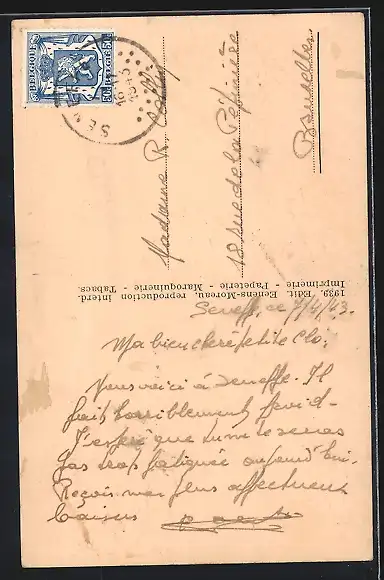 BELGIQUE 50c BELGIE 50c
SENEFFE
Madame R. Colly
18 rue de la Pépinière
Bruxelles
1939. Edit. Eeniens-Moreau, reproduction interd.
Imprimerie - Papeterie - Maroquinerie - Tabacs.
Seneffe, ce 7/4/43.
Ma bien chère petite Clo,
nous voici à Seneffe. Il
fait horriblement froid -
J'espère que tu ne te seras
pas trop fatiguée aujourd'hui.
Reçois mes plus affectueux
baisers